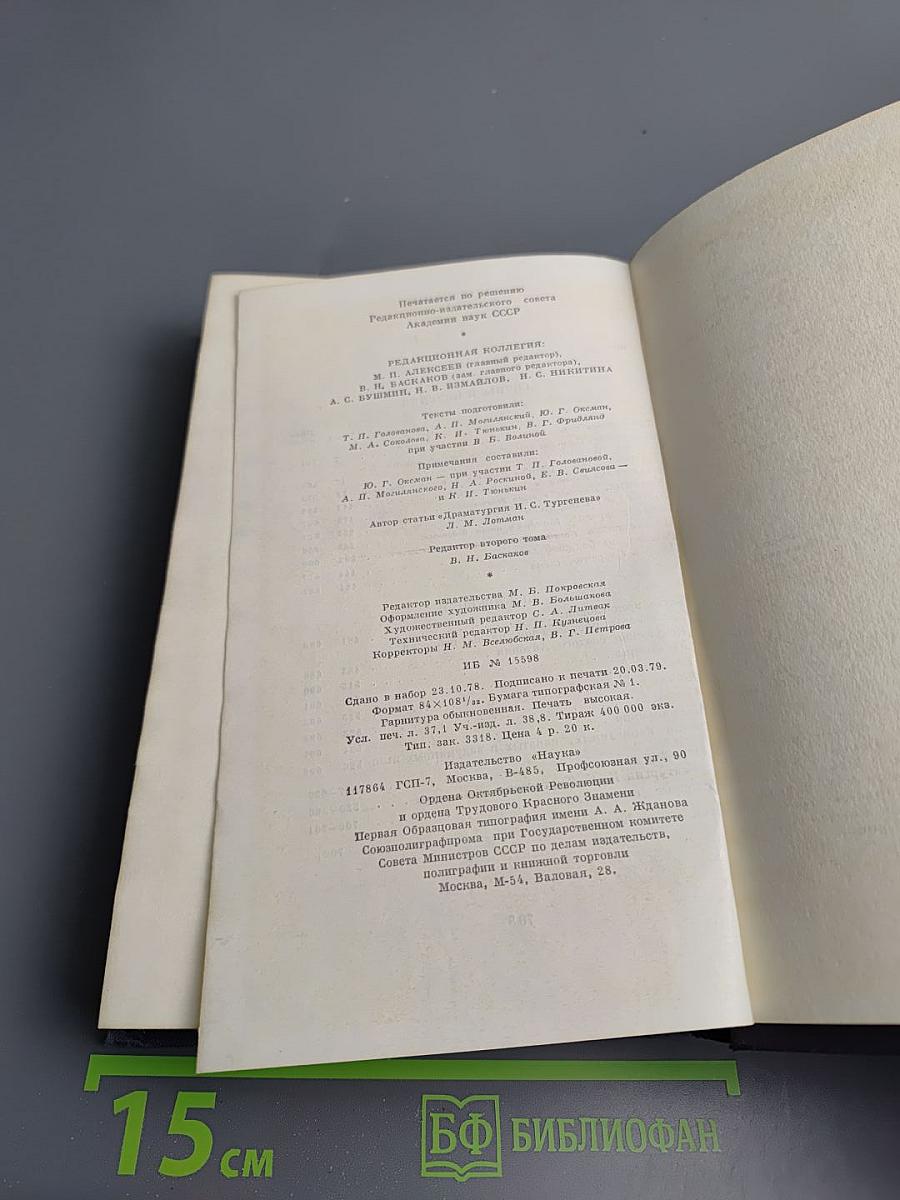 Печатается по решению
Редакционно-издательского совета
Академии наук СССР
*
РЕДАКЦИОННАЯ КОЛЛЕГИЯ:
М. П. АЛЕКСЕЕВ (главный редактор),
В. Н. БАСКАКОВ (зам. главного редактора),
А. С. БУШМИН, Н. В. ИЗМАЙЛОВ, Н. С. НИКИТИНА
Тексты подготовили:
Т. П. Голованова, А. П. Могилянский, Ю. Г. Оксман,
М. А. Соколова, К. И. Тюнькин, В. Г. Фридлянд
при участии В. Б. Волиной
Примечания составили:
Ю. Г. Оксман — при участии Т. П. Головановой,
А. П. Могилянского, Н. А. Роскиной, Е. В. Свиясова —
и К. И. Тюнькин
Автор статьи «Драматургия И. С. Тургенева»
Л. М. Лотман
Редактор второго тома
В. Н. Баскаков
*
Редактор издательства М. Б. Покровская
Оформление художника М. В. Большакова
Художественный редактор С. А. Литвак
Технический редактор Н. П. Кузнецова
Корректоры Н. М. Вселюбская, В. Г. Петрова
ИБ № 15598
Сдано в набор 23.10.78. Подписано к печати 20.03.79.
Формат 84×108¹/₃₂. Бумага типографская № 1.
Гарнитура обыкновенная. Печать высокая.
Усл. печ. л. 37,1 Уч.-изд. л. 38,8. Тираж 400 000 экз.
Тип. зак. 3318. Цена 4 р. 20 к.
Издательство «Наука»
117864 ГСП-7, Москва, В-485, Профсоюзная ул., 90
Ордена Октябрьской Революции
и ордена Трудового Красного Знамени
Первая Образцовая типография имени А. А. Жданова
Союзполиграфпрома при Государственном комитете
Совета Министров СССР по делам издательств,
полиграфии и книжной торговли
Москва, М-54, Валовая, 28.
15 см
БФ БИБЛИОФАН